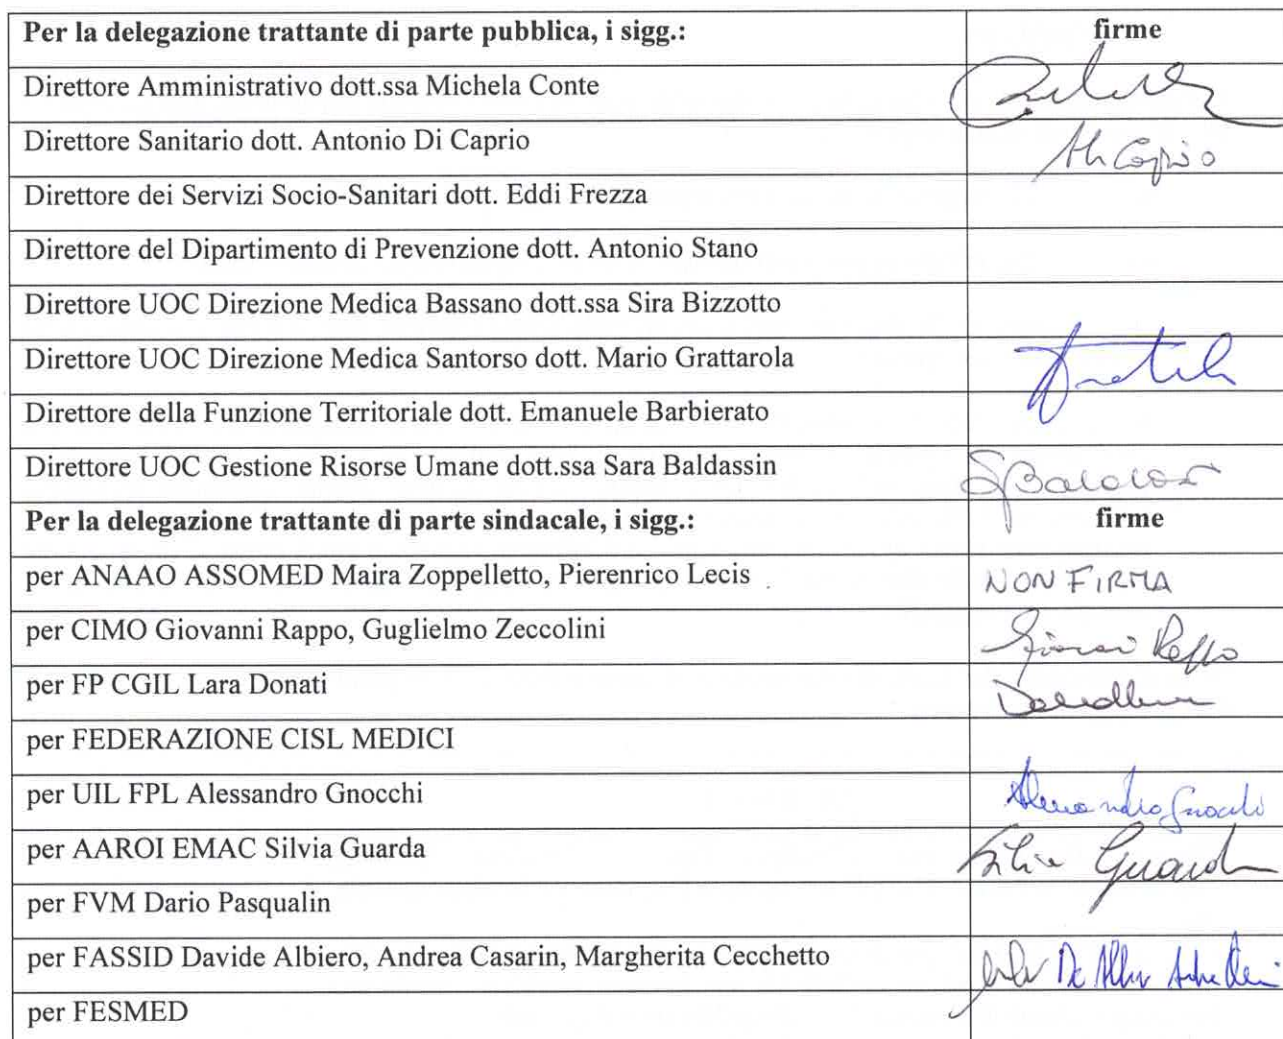 Per la delegazione trattante di parte pubblica, i sigg.: firme
Direttore Amministrativo dott.ssa Michela Conte
Direttore Sanitario dott. Antonio Di Caprio
Direttore dei Servizi Socio-Sanitari dott. Eddi Frezza
Direttore del Dipartimento di Prevenzione dott. Antonio Stano
Direttore UOC Direzione Medica Bassano dott.ssa Sira Bizzotto
Direttore UOC Direzione Medica Santorso dott. Mario Grattarola
Direttore della Funzione Territoriale dott. Emanuele Barbierato
Direttore UOC Gestione Risorse Umane dott.ssa Sara Baldassin
Per la delegazione trattante di parte sindacale, i sigg.: firme
per ANAAO ASSOMED Maira Zoppelletto, Pierenrico Lecis NON FIRMA
per CIMO Giovanni Rappo, Guglielmo Zeccolini
per FP CGIL Lara Donati
per FEDERAZIONE CISL MEDICI
per UIL FPL Alessandro Gnocchi
per AAROI EMAC Silvia Guarda
per FVM Dario Pasqualin
per FASSID Davide Albiero, Andrea Casarin, Margherita Cecchetto
per FESMED